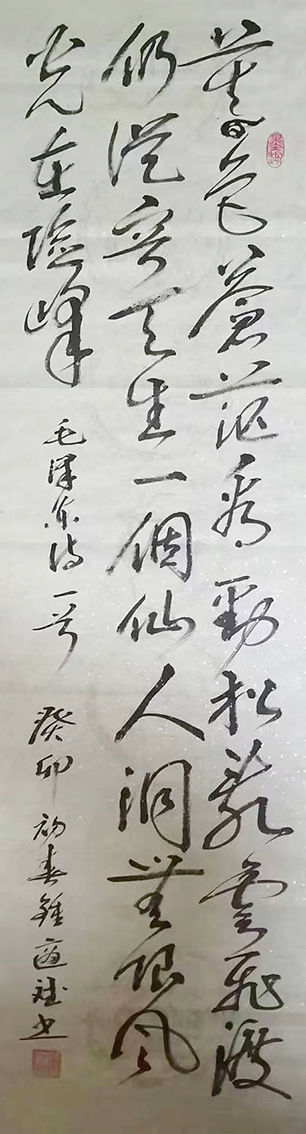 暮色蒼茫看勁松亂雲飛渡
仍從容天生一個仙人洞無限風
光在險峰
毛澤東詩一首
癸卯初春鍾書